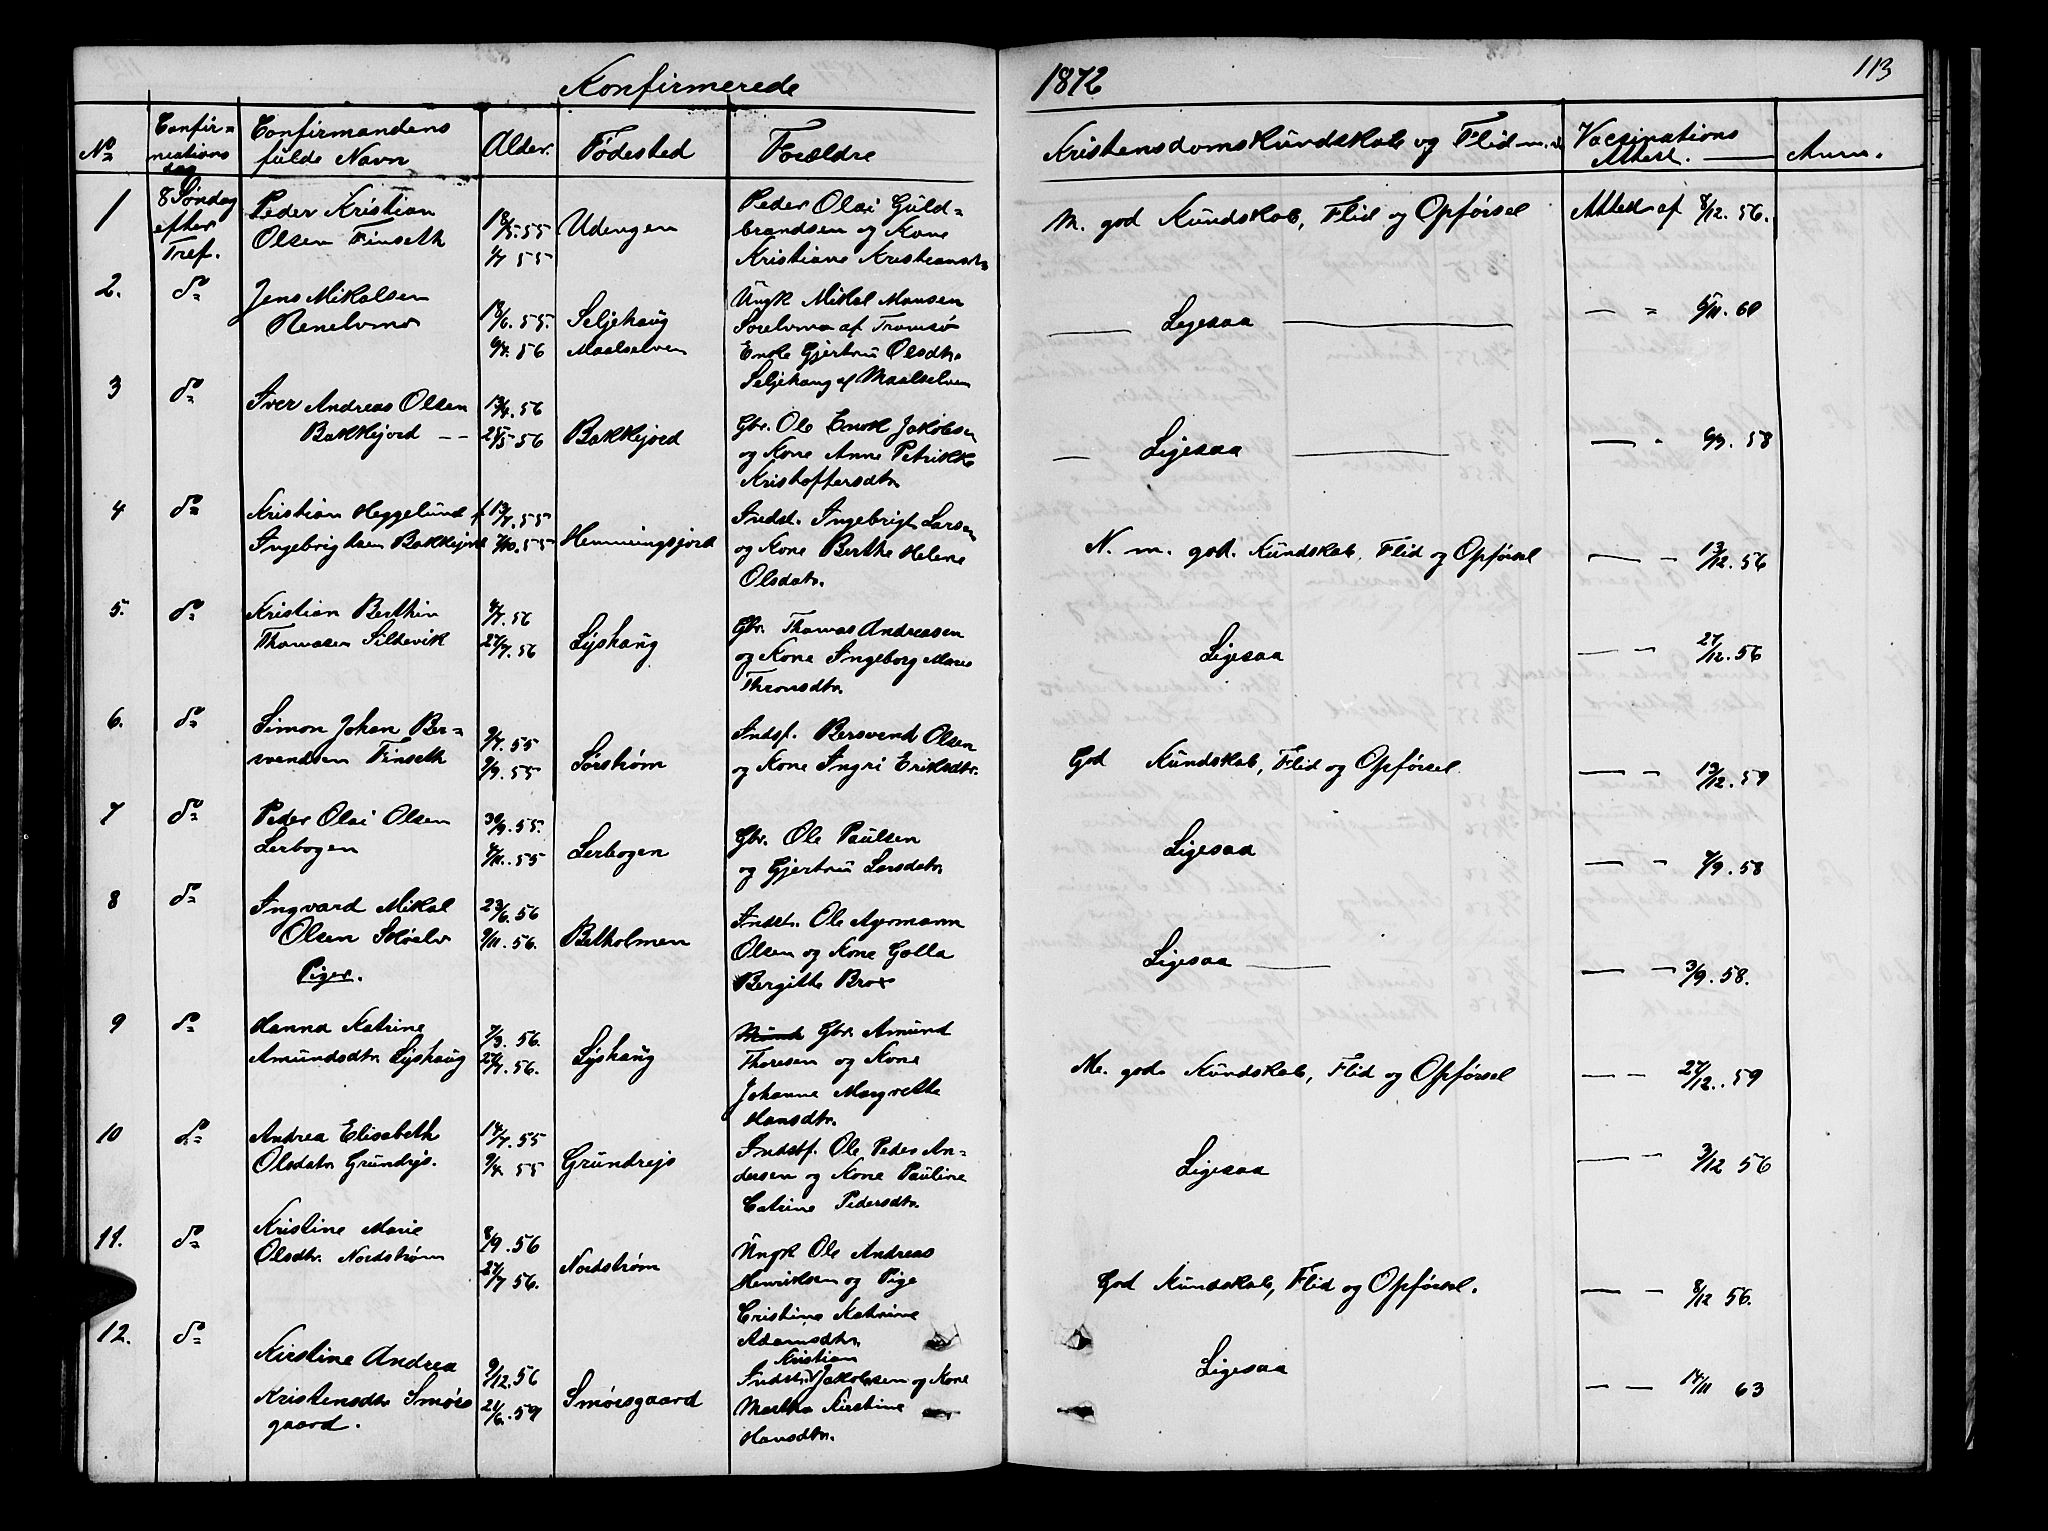 Konfirmerede
1872
113
No
Confirmations dag
Confirmandens fulde Navn
Alder.
Fødested
Forældre
Kristensdomskundskab og Flid m.v.
Vacsinations Attest.
Anm.
1
8 Søndag efter Tref.
Peder Kristian
Olsen Finseth
18/5. 55
1/7 55
Udengen
Peder Olai Guld-
brandsen og Kone
Kristiane Kristiansdtr
M. god Kundskab, Flid og Opførsel
Attest af 8/12. 56.
2.
do
Jens Mikalsen
Renelvmo
18/6. 55.
6/4. 56
Seljehaug
Maalselven
Ungk Mikal Monsen
af Tromsø
Enole Gjertrue Olsdtr.
Seljehaug af Maalselven
Ligesaa
— " 5/11. 60
3
do
Iver Andreas Olsen
Bakkejord
13/4. 56
25/5 56
Bakkejord
Gbr. Ole Enok Jakobsen
og Kone Anne Petrikke
Kristoffersdtr
Ligesaa
— " 6/9. 58
4
do
Kristian Heggelund
Ingebrigtsen Bakkejord
13/7. 55
7/10. 55
Hemmingsjord
Indst. Ingebrigt Larsen
og Kone Berthe Helene
Olsdatr.
N. m. god. Kundskab, Flid og Opførsel
— — 13/12. 56
5.
do
Kristian Berthin
Thomasen Sildevik
4/7. 56
27/7. 56
Lyshaug
Gbr. Thomas Andreasen
og Kone Ingeborg Marie
Thronsdtr.
Ligesaa
— — 27/12. 56
6.
do
Simon Johan Ber-
svendsen Finseth
9/7. 55
9/9. 55
Sørstrøm
Indsf. Bersvend Olsen
og Kone Ingri Eriksdtr.
God Kundskab, Flid og Opførsel.
— — 13/12. 59
7
do
Peder Olai Olsen
Lerbogen
30/9. 55.
4/11. 55
Lerbogen
Gbr. Ole Paulsen
og Gjertrue Larsdatr.
Ligesaa
— — 7/9. 58
8
do
Ingvard Mikal
Olsen Skøelv
23/6. 56
9/11. 56.
Betholmen
Indst. Ole Agermann
Olsen og Kone Golla
Bergitte Brox
Ligesaa
— — 3/9. 58.
Piger.
9
do
Hanna Katrine
Amundsdtr. Lyshaug
7/3. 56.
27/7. 56.
Lyshaug
Gbr. Amund
Thoresen og Kone
Johanne Margrethe
Hansdtr.
Me. gode Kundskab, Flid og Opførsel
— — 27/12. 59
10
do
Andrea Elisabeth
Olsdatr Grundrejs.
14/7. 55
9/4. 55
Grundrejs
Indstf. Ole Peder An-
dersen og Kone Pauline
Catrine Pedersdtr.
Ligesaa
— — 3/12 56
11.
do
Kristine Marie
Olsdtr. Nordstrøm
8/9. 56
27/7 56.
Nordstrøm
Ungk Ole Andreas
Henriksen og Pige
Cristine Katrine
Adamsdtr.
God Kundskab, Flid og Opførsel.
— — 8/12 56.
12.
do
Kirstine Andrea
Kristensdtr Smørs
gaard.
9/12. 56
21/6. 57
Smørsgaard
Kristian
Indst. Jakobsen og Kone
Martha Kirstine
Hansdtr.
Ligesaa
— — 14/11 63